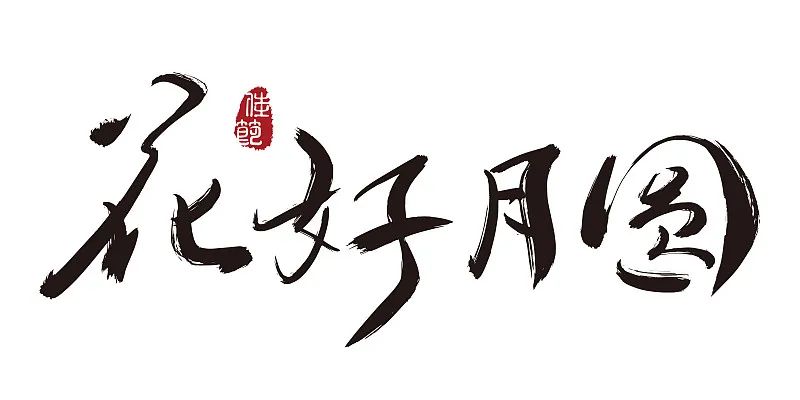 花好月圆
佳節